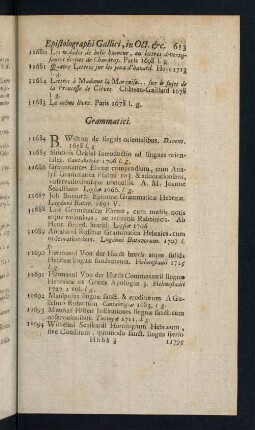 Epistolographi Gallici, in Oct. &c. 613
11680 Les malades de belle humeur, ou lettres divertissantes
écrites de Chaudray. Paris 1698 l. g.
11681 Quatre Lettres sur les jeux d'hazard. Haye 1713
l. g.
11682 Lettres à Madame la Marquise... sur le sujet de
la Princesse de Cleves. Château-Gaillard 1678
l. g.
11683 Le même livre. Paris 1678 l. g.
Grammatici.
11684 B. Walton de linguis orientalibus. Davent.
1658 l. g.
11685 Simonis Ockleii Introductio ad linguas orientales.
Cantabrigiae 1706 l. g.
11686 Grammatices Ebreae compendium, cum
A. M. Joanne
1666. l. g.
11687 Grammatica Hebraea.
Lugduni Batav. 1691 V.
11688 Grammatica Ebraea, cum multis notis
atque rationibus, ac terminis Rabbinicis. Ab
Henr. Bened. Starkii. Lipsiae 1706
11689 Abrahami Reusii Grammatica Hebraica, cum
observationibus. Lugduni Batavorum. 1707 l.
g.
11690 Hermanni Von der Hardt brevia atque solida
Hebraeae linguae fundamenta. Helmstadii 1715
l. g.
11691 Hermanni Von der Hardt Commentarii linguae
Hebraeae ex Graeca Apologia 3. Helmstadii
1727. 2 vol. l. g.
11692 Manipulus linguae sanct. & eruditorum A Guilielmo
Robertson. Cantabrigiae 1683, l. g.
11693 Institutiones linguae sanct. cum
observationibus. Tubingae 1711, l. g.
11694 Wilhelmi Schikardi Horologium Hebraeum,
sive Consilium, quomodo sancta lingua spatio
Hhhh 3 11795